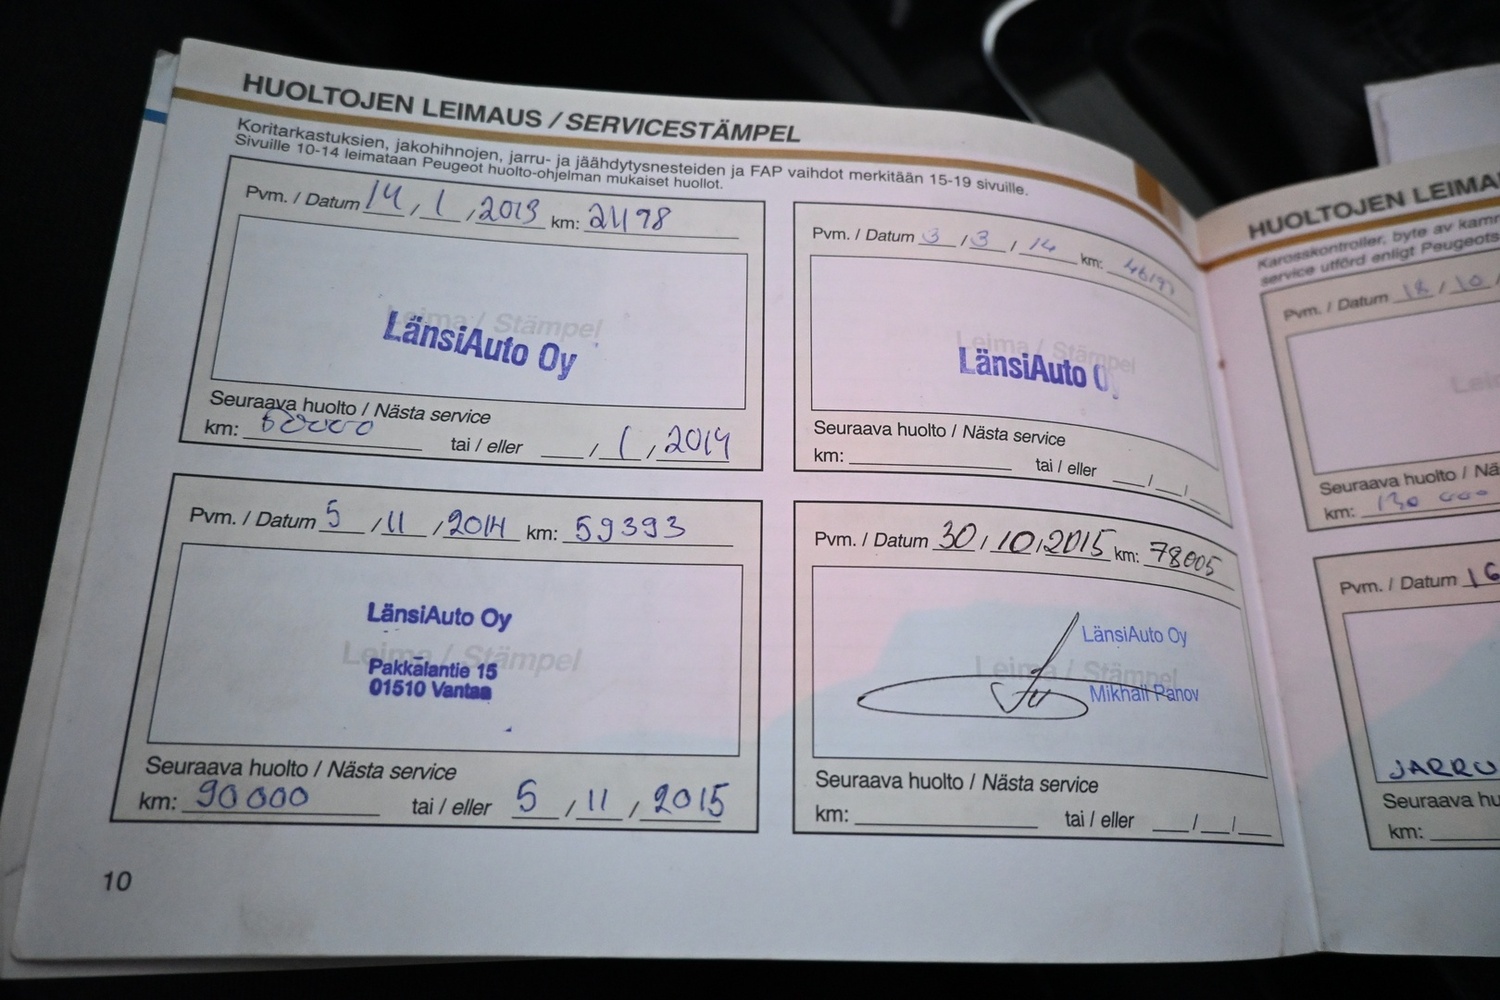 HUOLTOJEN LEIMAUS / SERVICESTÄMPEL
Koritarkastuksien, jakohihnojen, jarru- ja jäähdytysnesteiden ja FAP vaihdot merkitään 15-19 sivuille.
Sivuille 10-14 leimataan Peugeot huolto-ohjelman mukaiset huollot.
Pvm. / Datum 14 / 1 / 2013 km: 21198
Leima / Stämpel
LänsiAuto Oy
Seuraava huolto / Nästa service
km: 60000 tai / eller / 1 / 2014
Pvm. / Datum 3 / 3 / 14 km: 46197
Leima / Stämpel
LänsiAuto O
Seuraava huolto / Nästa service
km: tai / eller / /
Pvm. / Datum 5 / 11 / 2014 km: 59393
LänsiAuto Oy
Leima / Stämpel
Pakkalantie 15
01510 Vantaa
Seuraava huolto / Nästa service
km: 90000 tai / eller 5 / 11 / 2015
Pvm. / Datum 30 / 10 / 2015 km: 78005
LänsiAuto Oy
Leima / Stämpel
Mikhail Panov
Seuraava huolto / Nästa service
km: tai / eller / /
10
HUOLTOJEN LEIMA
Karosskontroller, byte av kamr
service utförd enligt Peugeots
Pvm. / Datum 18 / 10 /
Lei
Seuraava huolto / Nä
km: 130 000
Pvm. / Datum 16
JARRU
Seuraava hu
km: